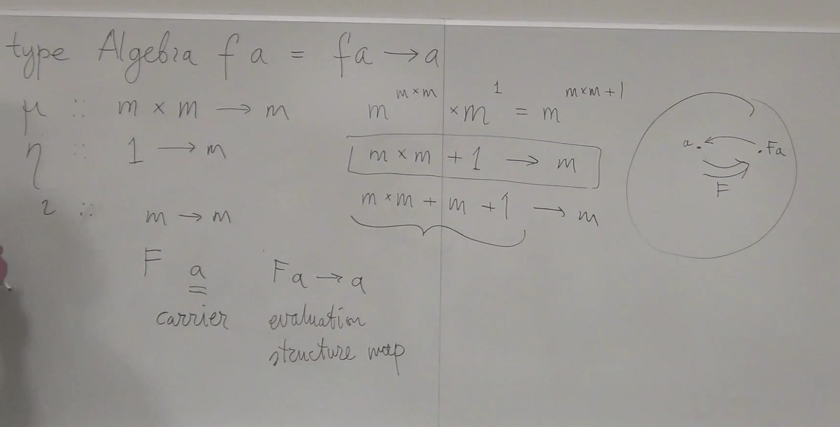 type Algebra f a = f a → a
μ :: m × m → m
m^{m×m} × m^1 = m^{m×m+1}
η :: 1 → m
m × m + 1 → m
a. .Fa
F
i :: m → m
m × m + m + 1 → m
F a Fa → a
carrier evaluation
structure map